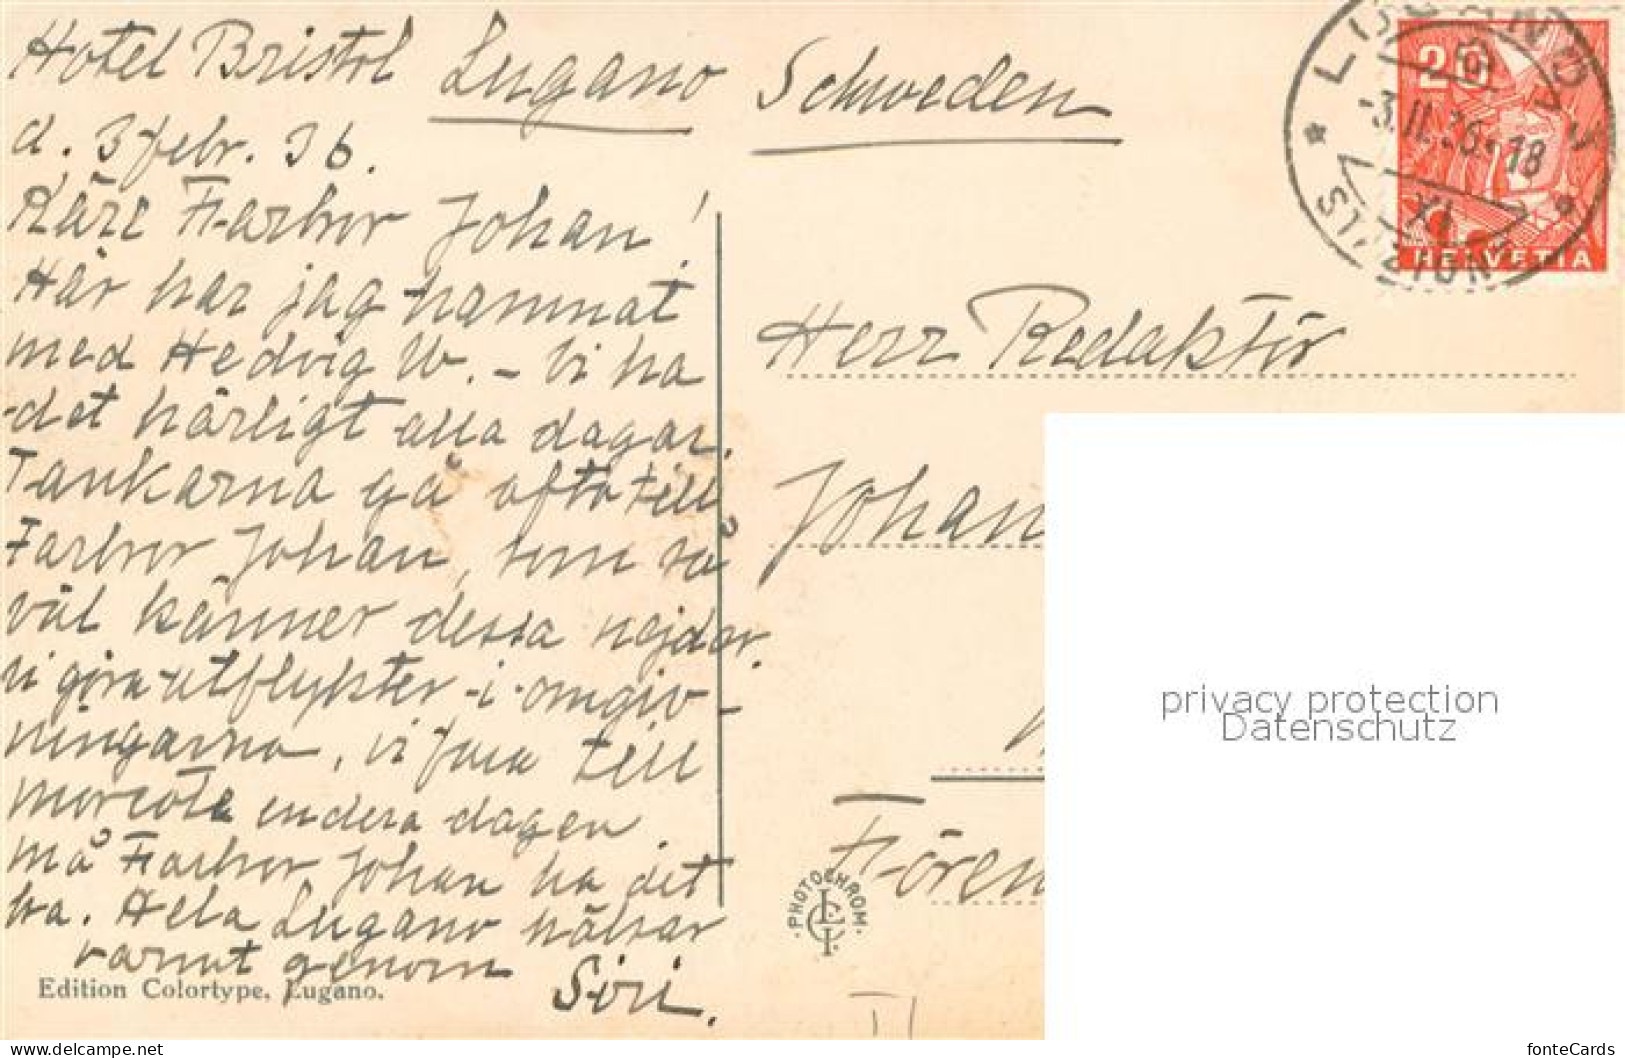 Hotel Bristol Lugano
d. 3 febr. 36.
Käre Farbror Johan!
Här har jag hamnat
med Hedvig W. - Vi ha
det härligt alla dagar.
Tankarna gå ofta till
Farbror Johan, som så
väl känner dessa nejder.
Vi göra utflykter i omgiv-
ningarna, vi fara till
Morcote endera dagen
må Farbror Johan ha det
bra. Hela Lugano hälsar
varmt genom
Siri.
Edition Colortype, Lugano.
Schweden
Herr Redaktör
Johan
Fören
PHOTOCHROM.
LUGANO
-3.II.36.-18
XI
HELVETIA
20
privacy protection
Datenschutz
www.ansichtskartenversand.com
fonteCards